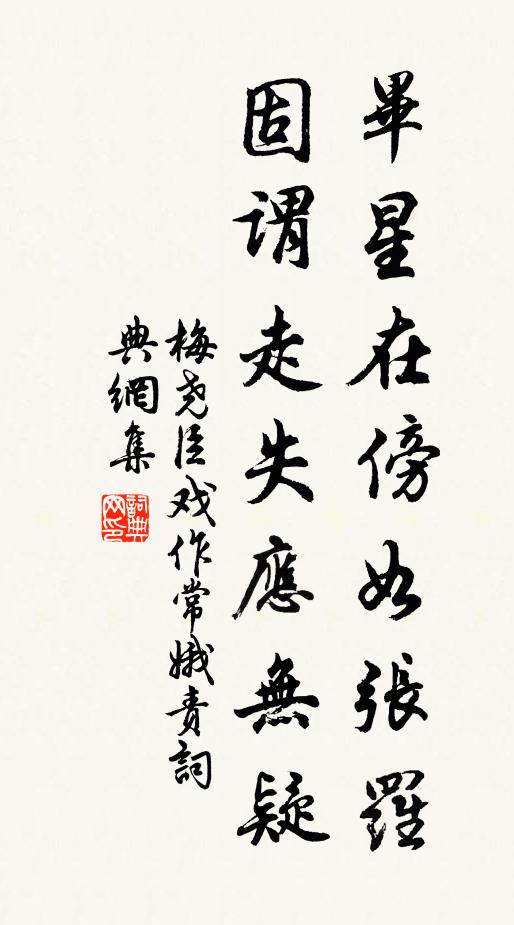 畢星在傍如張羅
固謂走失應無疑
梅尧臣戏作常娥责詞
典網集
詞典網印